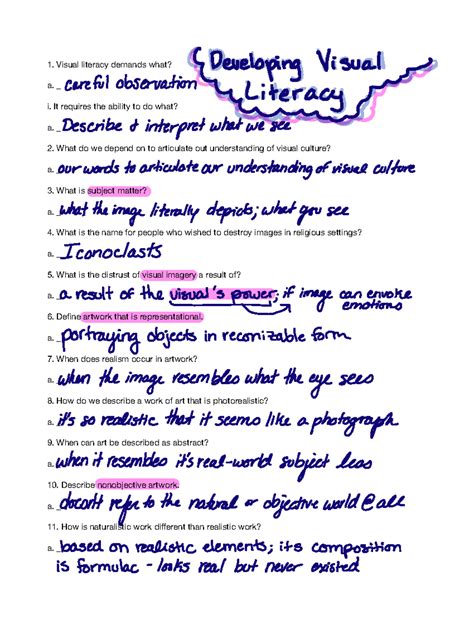 Developing Visual
Literacy
1. Visual literacy demands what?
a. careful observation
i. It requires the ability to do what?
a. Describe & interpret what we see
2. What do we depend on to articulate out understanding of visual culture?
a. our words to articulate our understanding of visual culture
3. What is subject matter?
a. what the image literally depicts; what you see
4. What is the name for people who wished to destroy images in religious settings?
a. Iconoclasts
5. What is the distrust of visual imagery a result of?
a. a result of the visual's power; if image can envoke
emotions
6. Define artwork that is representational.
a. portraying objects in reconizable form
7. When does realism occur in artwork?
a. when the image resembles what the eye sees
8. How do we describe a work of art that is photorealistic?
a. it's so realistic that it seems like a photograph
9. When can art be described as abstract?
a. when it resembles it's real-world subject less
10. Describe nonobjective artwork.
a. doesn't refer to the natural or objective world @ all
11. How is naturalistic work different than realistic work?
a. based on realistic elements; its composition
is formulac - looks real but never existed